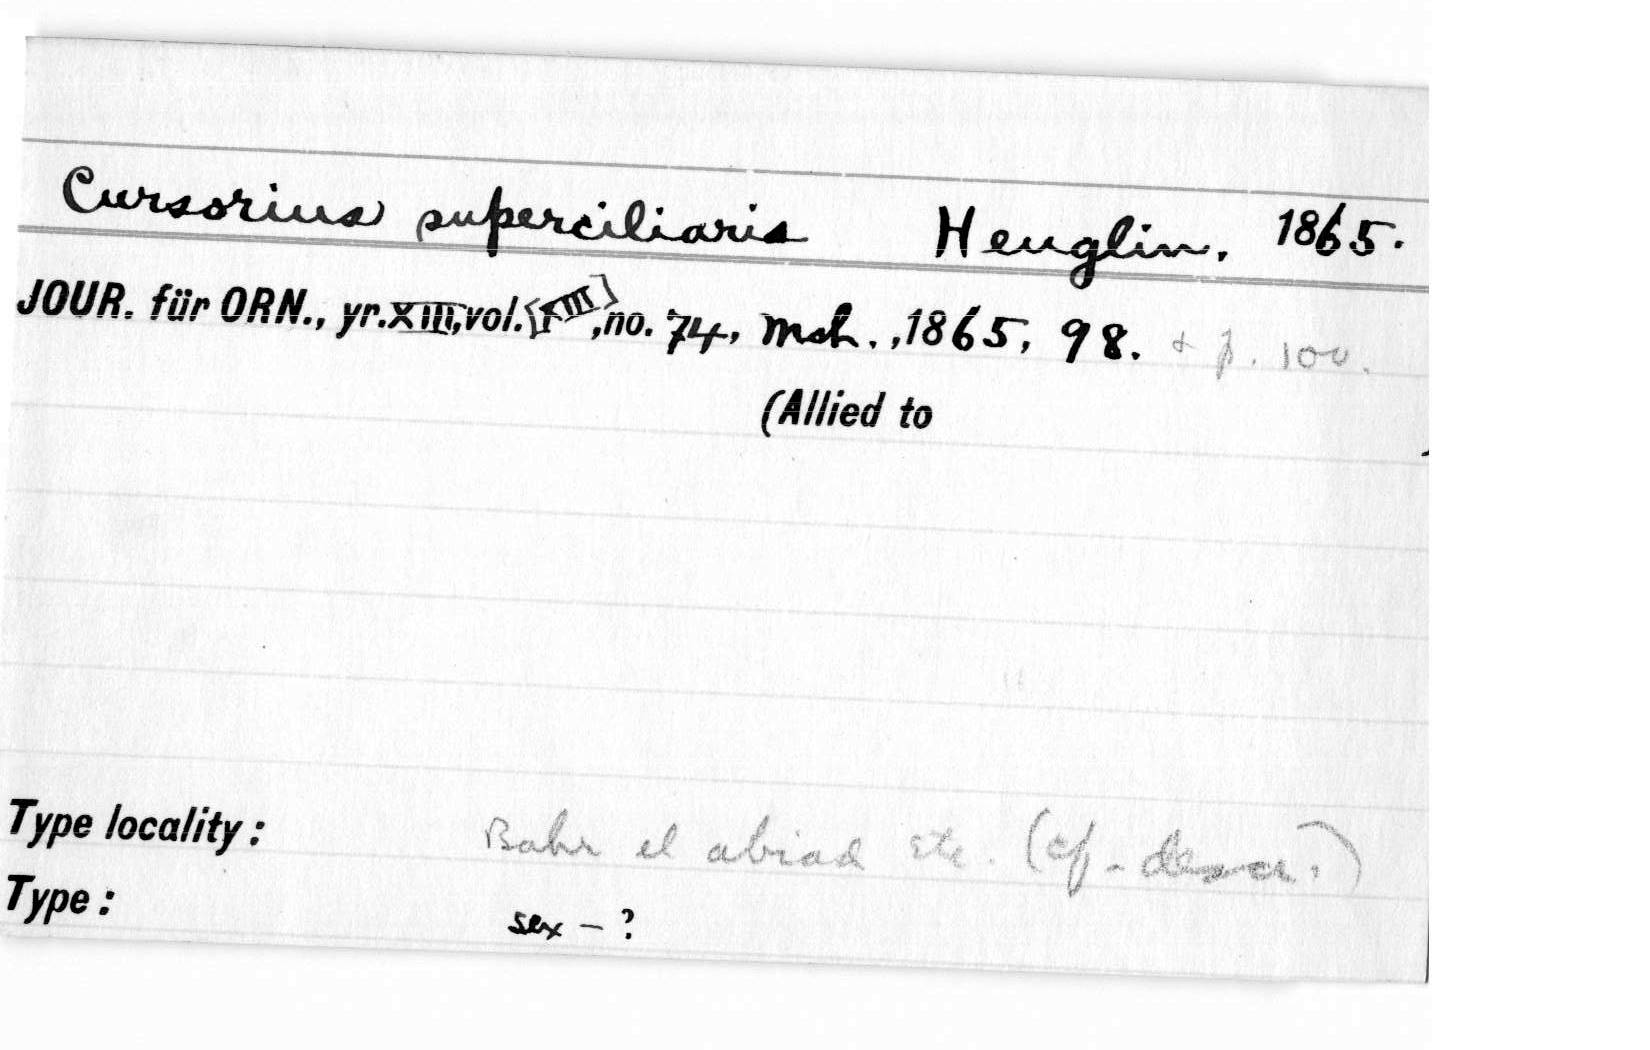 Cursorius superciliaris Heuglin, 1865.
JOUR. für ORN., yr.XIII,vol.[XIII],no. 74, Mch., 1865, 98. & p. 100.
(Allied to )
Type locality: Bahr el abiad etc. (cf. descr.)
Type: sex – ?